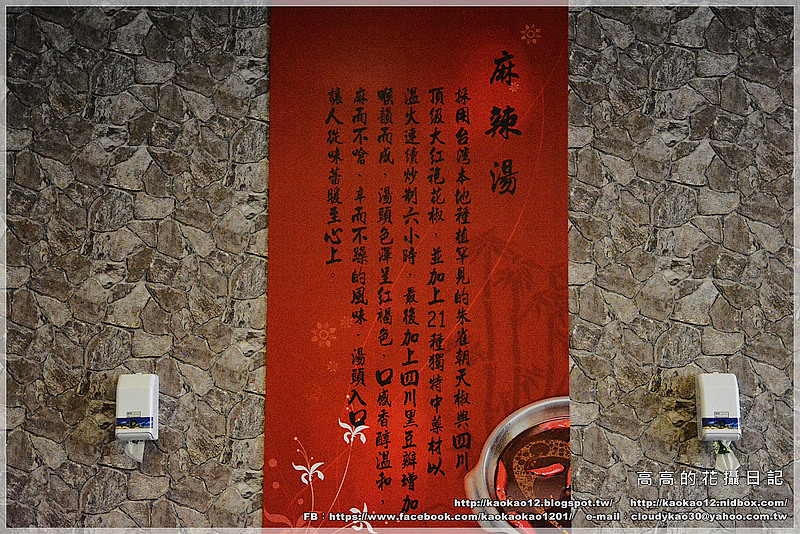 麻辣湯
採用台灣本地種植罕見的朱雀朝天椒與四川
頂級大紅袍花椒，並加上21種獨特中藥材以
溫火連續炒制六小時，最後加上四川黑豆瓣增加
喉韻而成，湯頭色澤呈紅褐色，口感香醇溫和，
麻而不嗆、辛而不躁的風味，湯頭入口
讓人從味蕾暖至心上。
高高的花攝日記
http://kaokao12.blogspot.tw/ http://kaokao12.nidbox.com/
FB：https://www.facebook.com/kaokaokao1201/ e-mail：cloudykao30@yahoo.com.tw